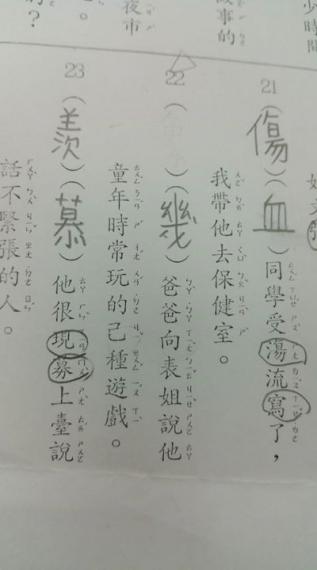 少時間
故事的
夜市
。
？
21（傷）（血）同學受湯流寫了，
我帶他去保健室。
22（　）（幾）爸爸向表姐說他
童年時常玩的己種遊戲。
23（羨）（慕）他很現募上臺說
話不緊張的人。